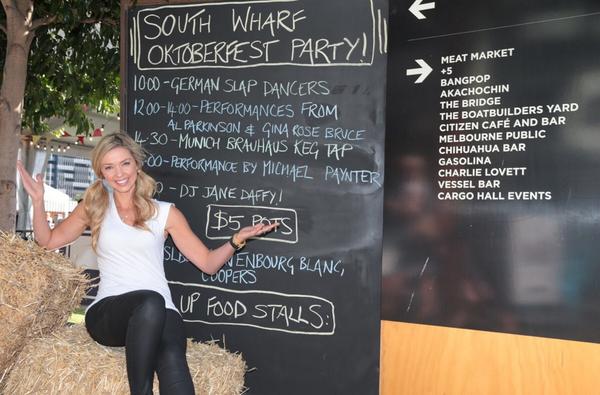 SOUTH WHARF
OKTOBERFEST PARTY!
10:00 - GERMAN SLAP DANCERS
12:00 - 14:00 - PERFORMANCES FROM
AL PARKINSON & GINA ROSE BRUCE
14:30 - MUNICH BRAUHAUS KEG TAP
:00 - PERFORMANCE BY MICHAEL PAYNTER
:0 - DJ JANE DAFFY!
$5 POTS
BLANC,
COOPERS
UP FOOD STALLS:
MEAT MARKET
+5
BANGPOP
AKACHOCHIN
THE BRIDGE
THE BOATBUILDERS YARD
CITIZEN CAFÉ AND BAR
MELBOURNE PUBLIC
CHIHUAHUA BAR
GASOLINA
CHARLIE LOVETT
VESSEL BAR
CARGO HALL EVENTS